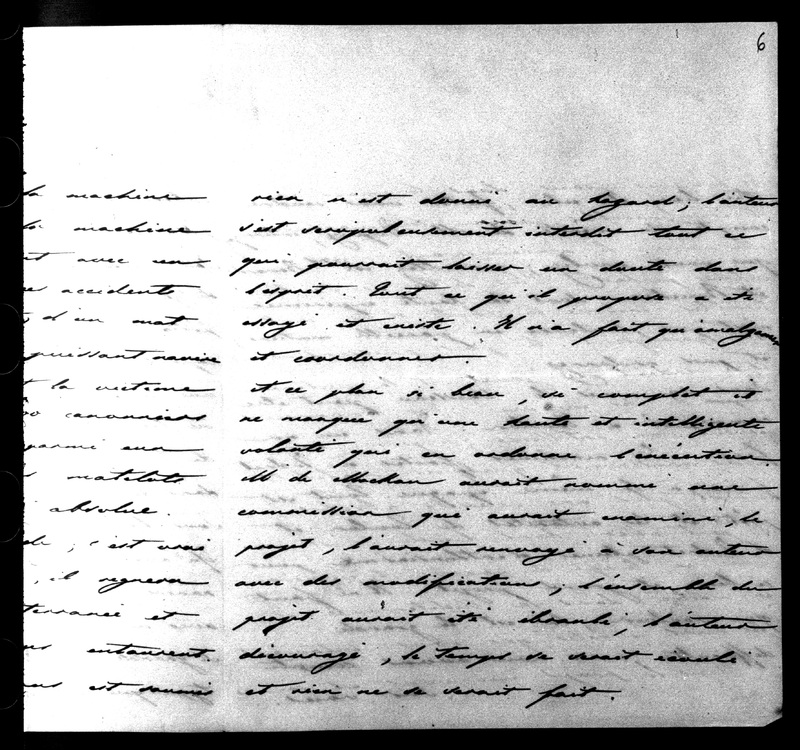 6
la machine
la machine
avec un
accidents
d'un mat
puissant navire
la victime
canonniers
parmi eux
matelots
absolue.
; c'est vrai
, il règnera
et
entourent.
est soumis
rien n'est donné au hasard; l'auteur
s'est scrupuleusement interdit tout ce
qui pourrait laisser un doute dans
l'esprit. Tout ce qu'il propose a été
essayé et existe. Il n'a fait qu'amalgamer
et coordonner.
et ce plan si beau, si complet et
ne manque qu'une haute et intelligente
volonté qui en ordonne l'exécution.
M de Mackau aurait nommé une
commission qui aurait examiné, le
projet, l'aurait renvoyé à son auteur
avec des modifications; l'ensemble du
projet aurait été ébranlé, l'auteur
découragé, le temps se serait écoulé
et rien ne se serait fait.